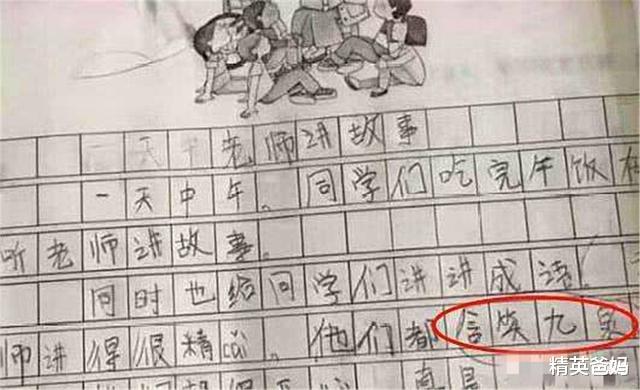 老师讲故事
一天中午。同学们吃完午饭
听老师讲故事。
同时也给同学们讲讲成语!
师讲得很精cǎi。他们都含笑九泉
真是
精英爸妈